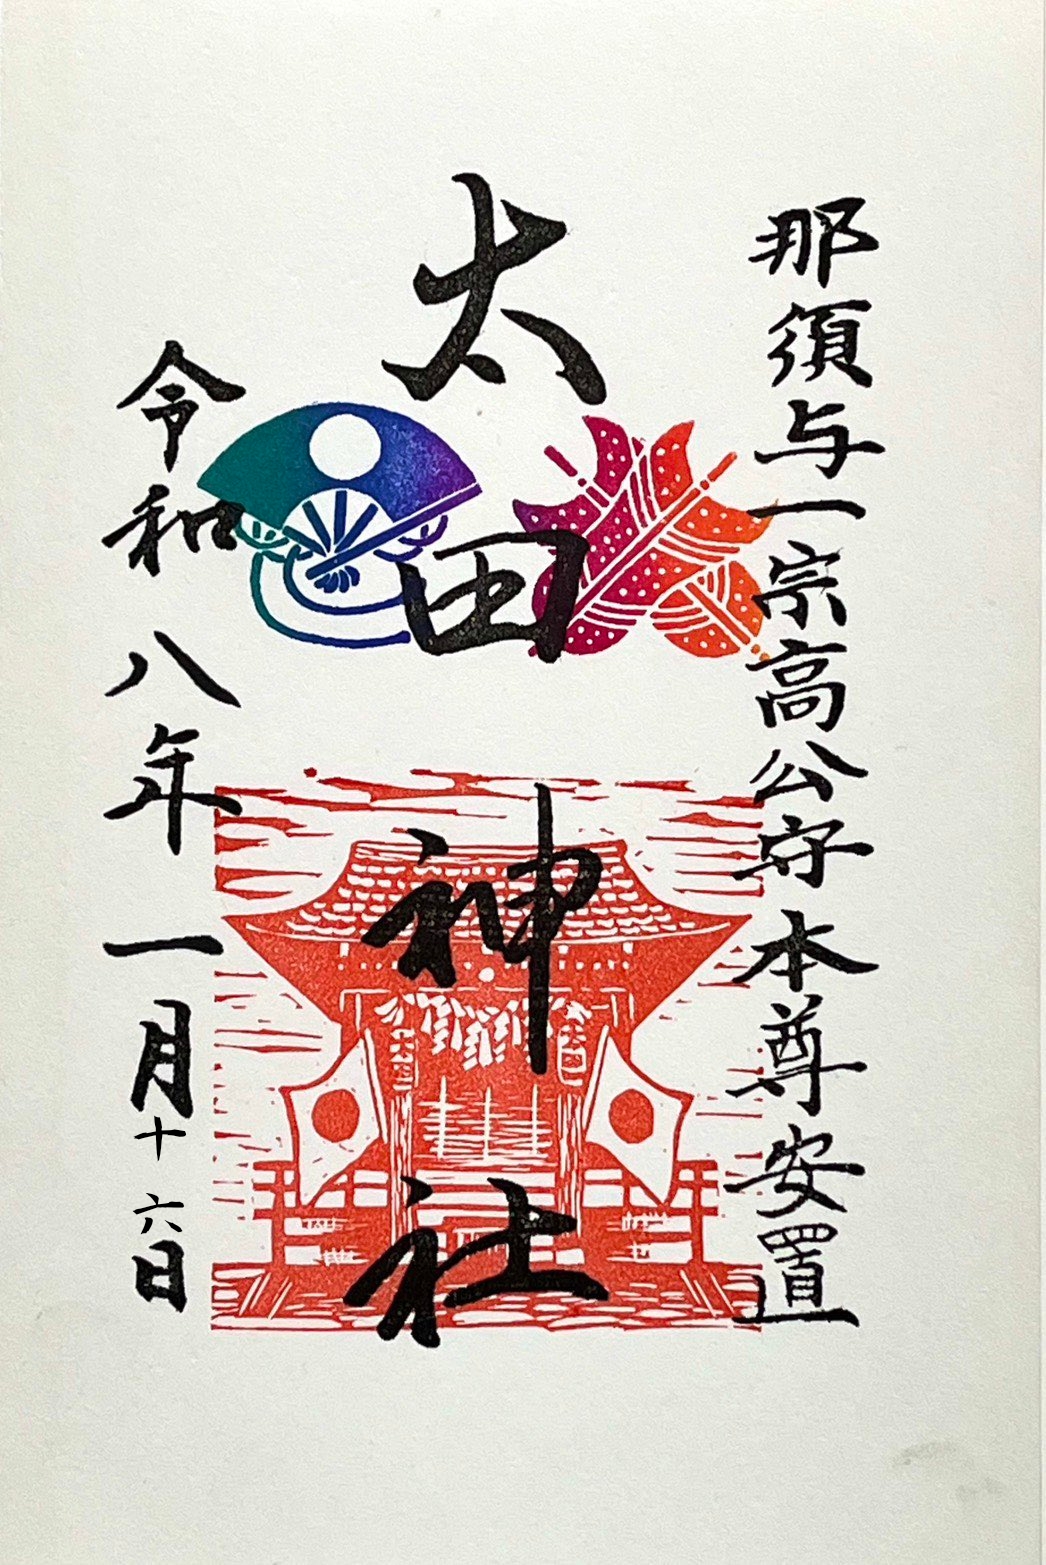 那須与一宗高公守本尊安置
太田神社
令和八年一月十六日